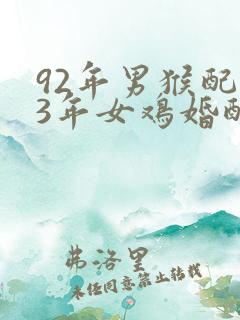 92年男猴配
3年女鸡婚配
弗洛里
未经同意禁止转载